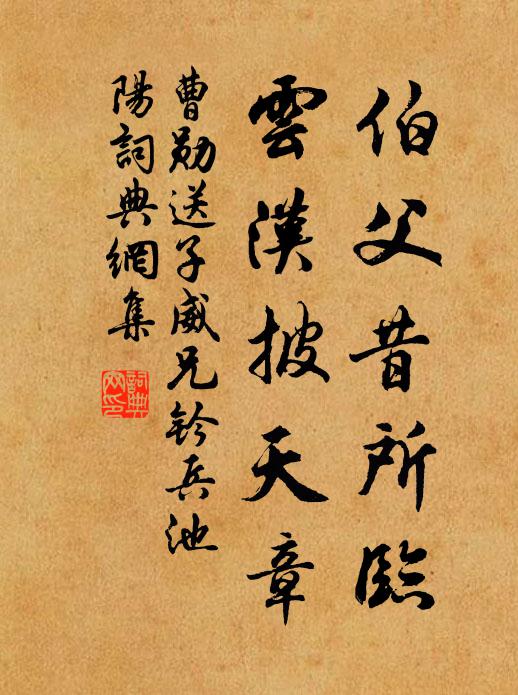 伯父昔所臨
雲漢披天章
曹勛送子威兄鈐兵池
陽詞典網集
詞典
网印